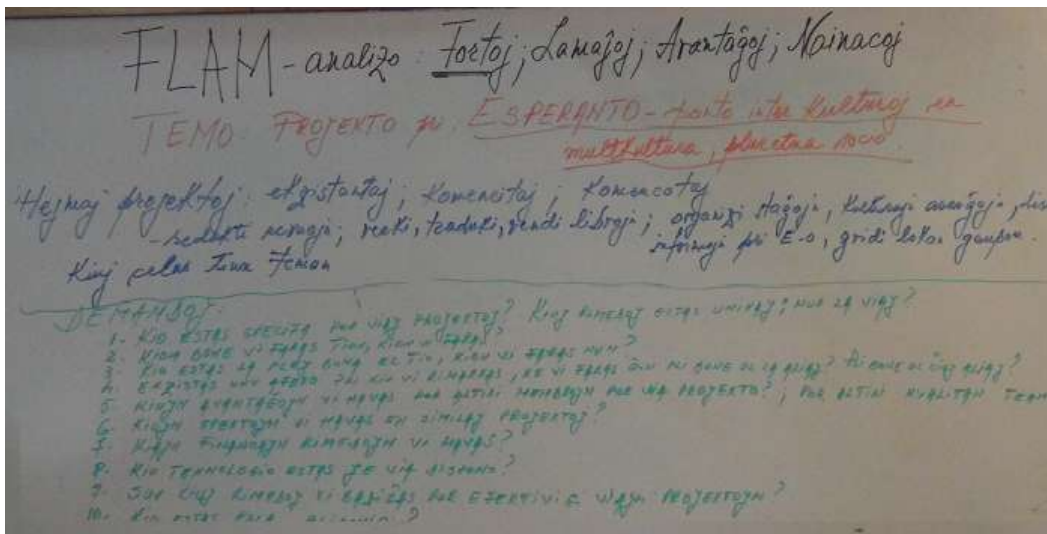 FLAM - analizo: Fortoj; Lamaĵoj; Avantaĝoj; Mainacoj
TEMO: PROJEKTO pri ESPERANTO - ponto inter kulturoj en
multkultura, pluretna socio.
Hejmaj projektoj: ekzistantaj; komencitaj; komencotaj
- redakti; verki, traduki, vendi librojn; organizi staĝojn, kulturajn aranĝojn,
informojn pri E-o, gvidi lokan grupon.
Kiuj celas tiun temon
DEMANDOJ:
1. KIO ESTAS SPECIFA POR VIAJ PROJEKTOJ? KIUJ RIMEDOJ ESTAS UNIKAJ; NUR LA VIAJ?
2. KIOM BONE VI FARAS TION, KION VI FARAS?
3. KIO ESTAS LA PLEJ BONA EL TIO, KION VI FARAS NUN?
4. EKZISTAS KIO VI RIMARKAS, KE VI FARAS BONE OL LA ALIAJ? BONE OL ALIAJ?
5. KIUJN AVANTAĜOJN VI HAVAS POR ALTIRI MEMBROJN POR VIA PROJEKTO?; POR ALTIRI KVALITAN TEAM
6. KIUJN SPERTOJN VI HAVAS EN SIMILAJ PROJEKTOJ?
7. KIUJN FINANCAJN RIMEDOJN VI HAVAS?
8. KIU TEKNOLOGIO ESTAS JE VIA DISPONO?
9. SUR KIUJ RIMEDOJ VI BAZIĜAS POR EFEKTIVIGI VIAJN PROJEKTOJN?
10. KIO ESTAS